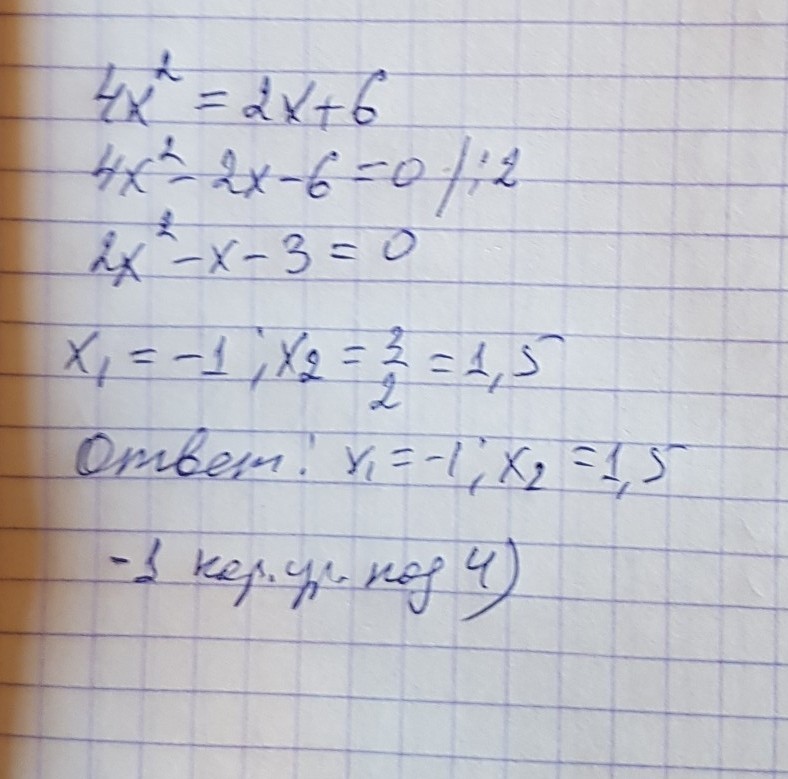 4x² = 2x+6
4x² - 2x - 6 = 0 /:2
2x² - x - 3 = 0
x₁ = -1; x₂ = 3/2 = 1,5
Ответ: x₁ = -1; x₂ = 1,5
-1 кор. ур. под 4)